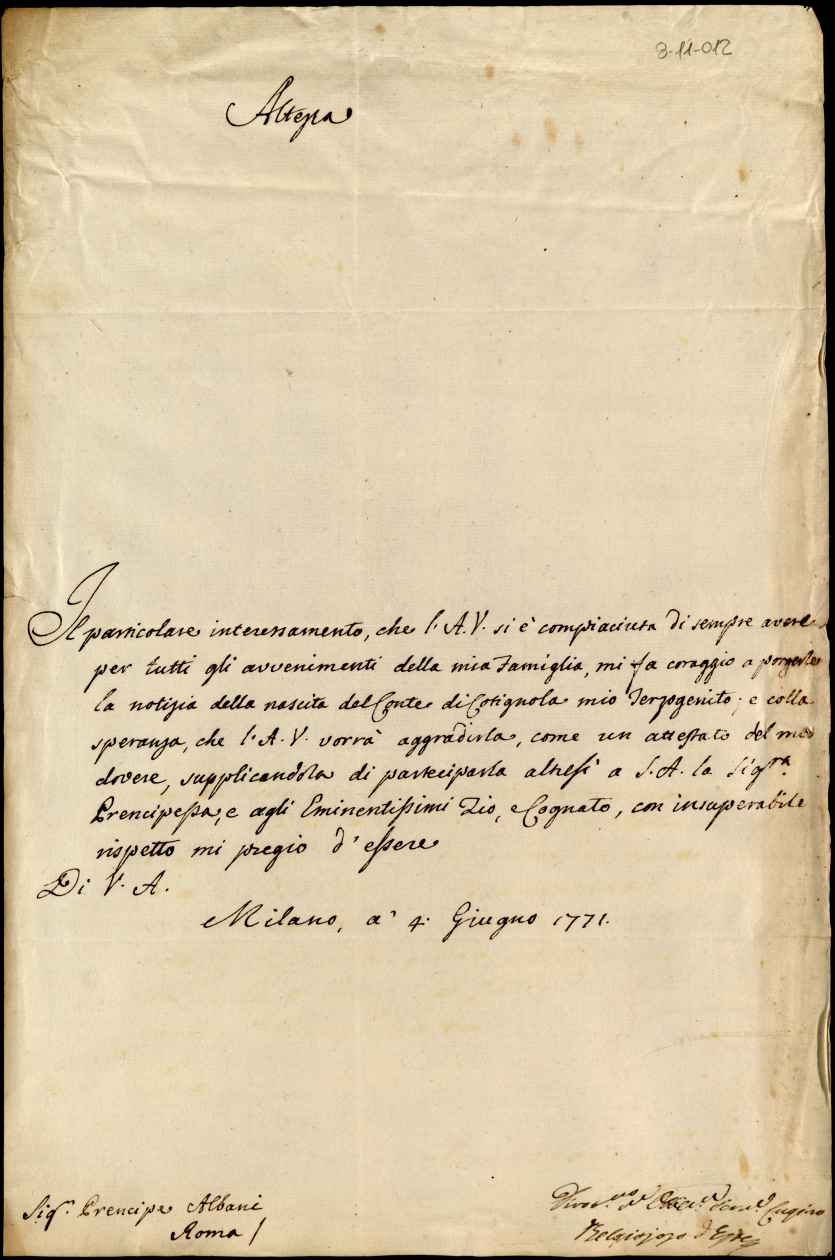 8-11-012
Altezza
Il particolare interessamento, che l'A.V. si è compiaciuta di sempre avere
per tutti gli avvenimenti della mia Famiglia, mi fa coraggio a porgerle
la notizia della nascita del Conte di Cotignola mio Terzogenito; e colla
speranza, che l'A.V. vorrà aggradirla, come un attestato del mio
dovere, supplicandola di parteciparla altresì a S.A. la Sigra
Prencipessa, e agli Eminentissimi Zio, e Cognato, con insuperabile
rispetto mi pregio d'essere
Di V. A.
Milano, a' 4. Giugno 1771.
Sigr. Prencipe Albani
Roma /
Cugino
Belgiojoso d'Este